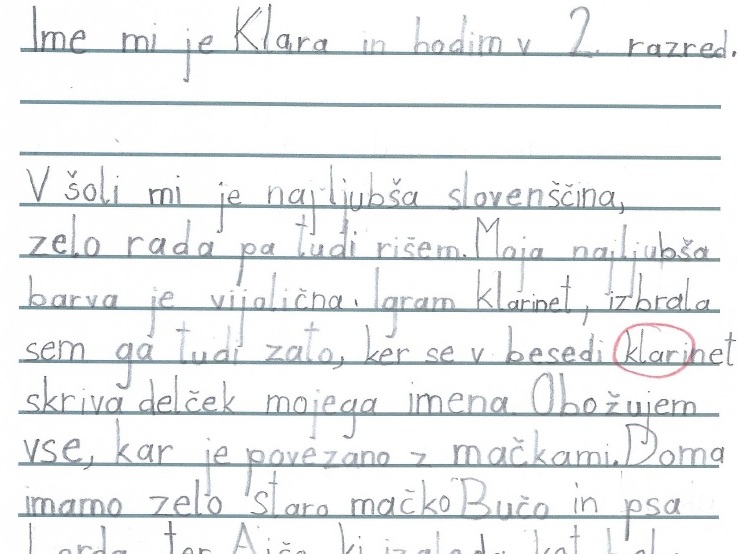 Ime mi je Klara in hodim v 2. razred.
V šoli mi je najljubša slovenščina,
zelo rada pa tudi rišem. Moja najljubša
barva je vijolična. Igram klarinet, izbrala
sem ga tudi zato, ker se v besedi klarinet
skriva delček mojega imena. Obožujem
vse, kar je povezano z mačkami. Doma
imamo zelo staro mačko Bučo in psa